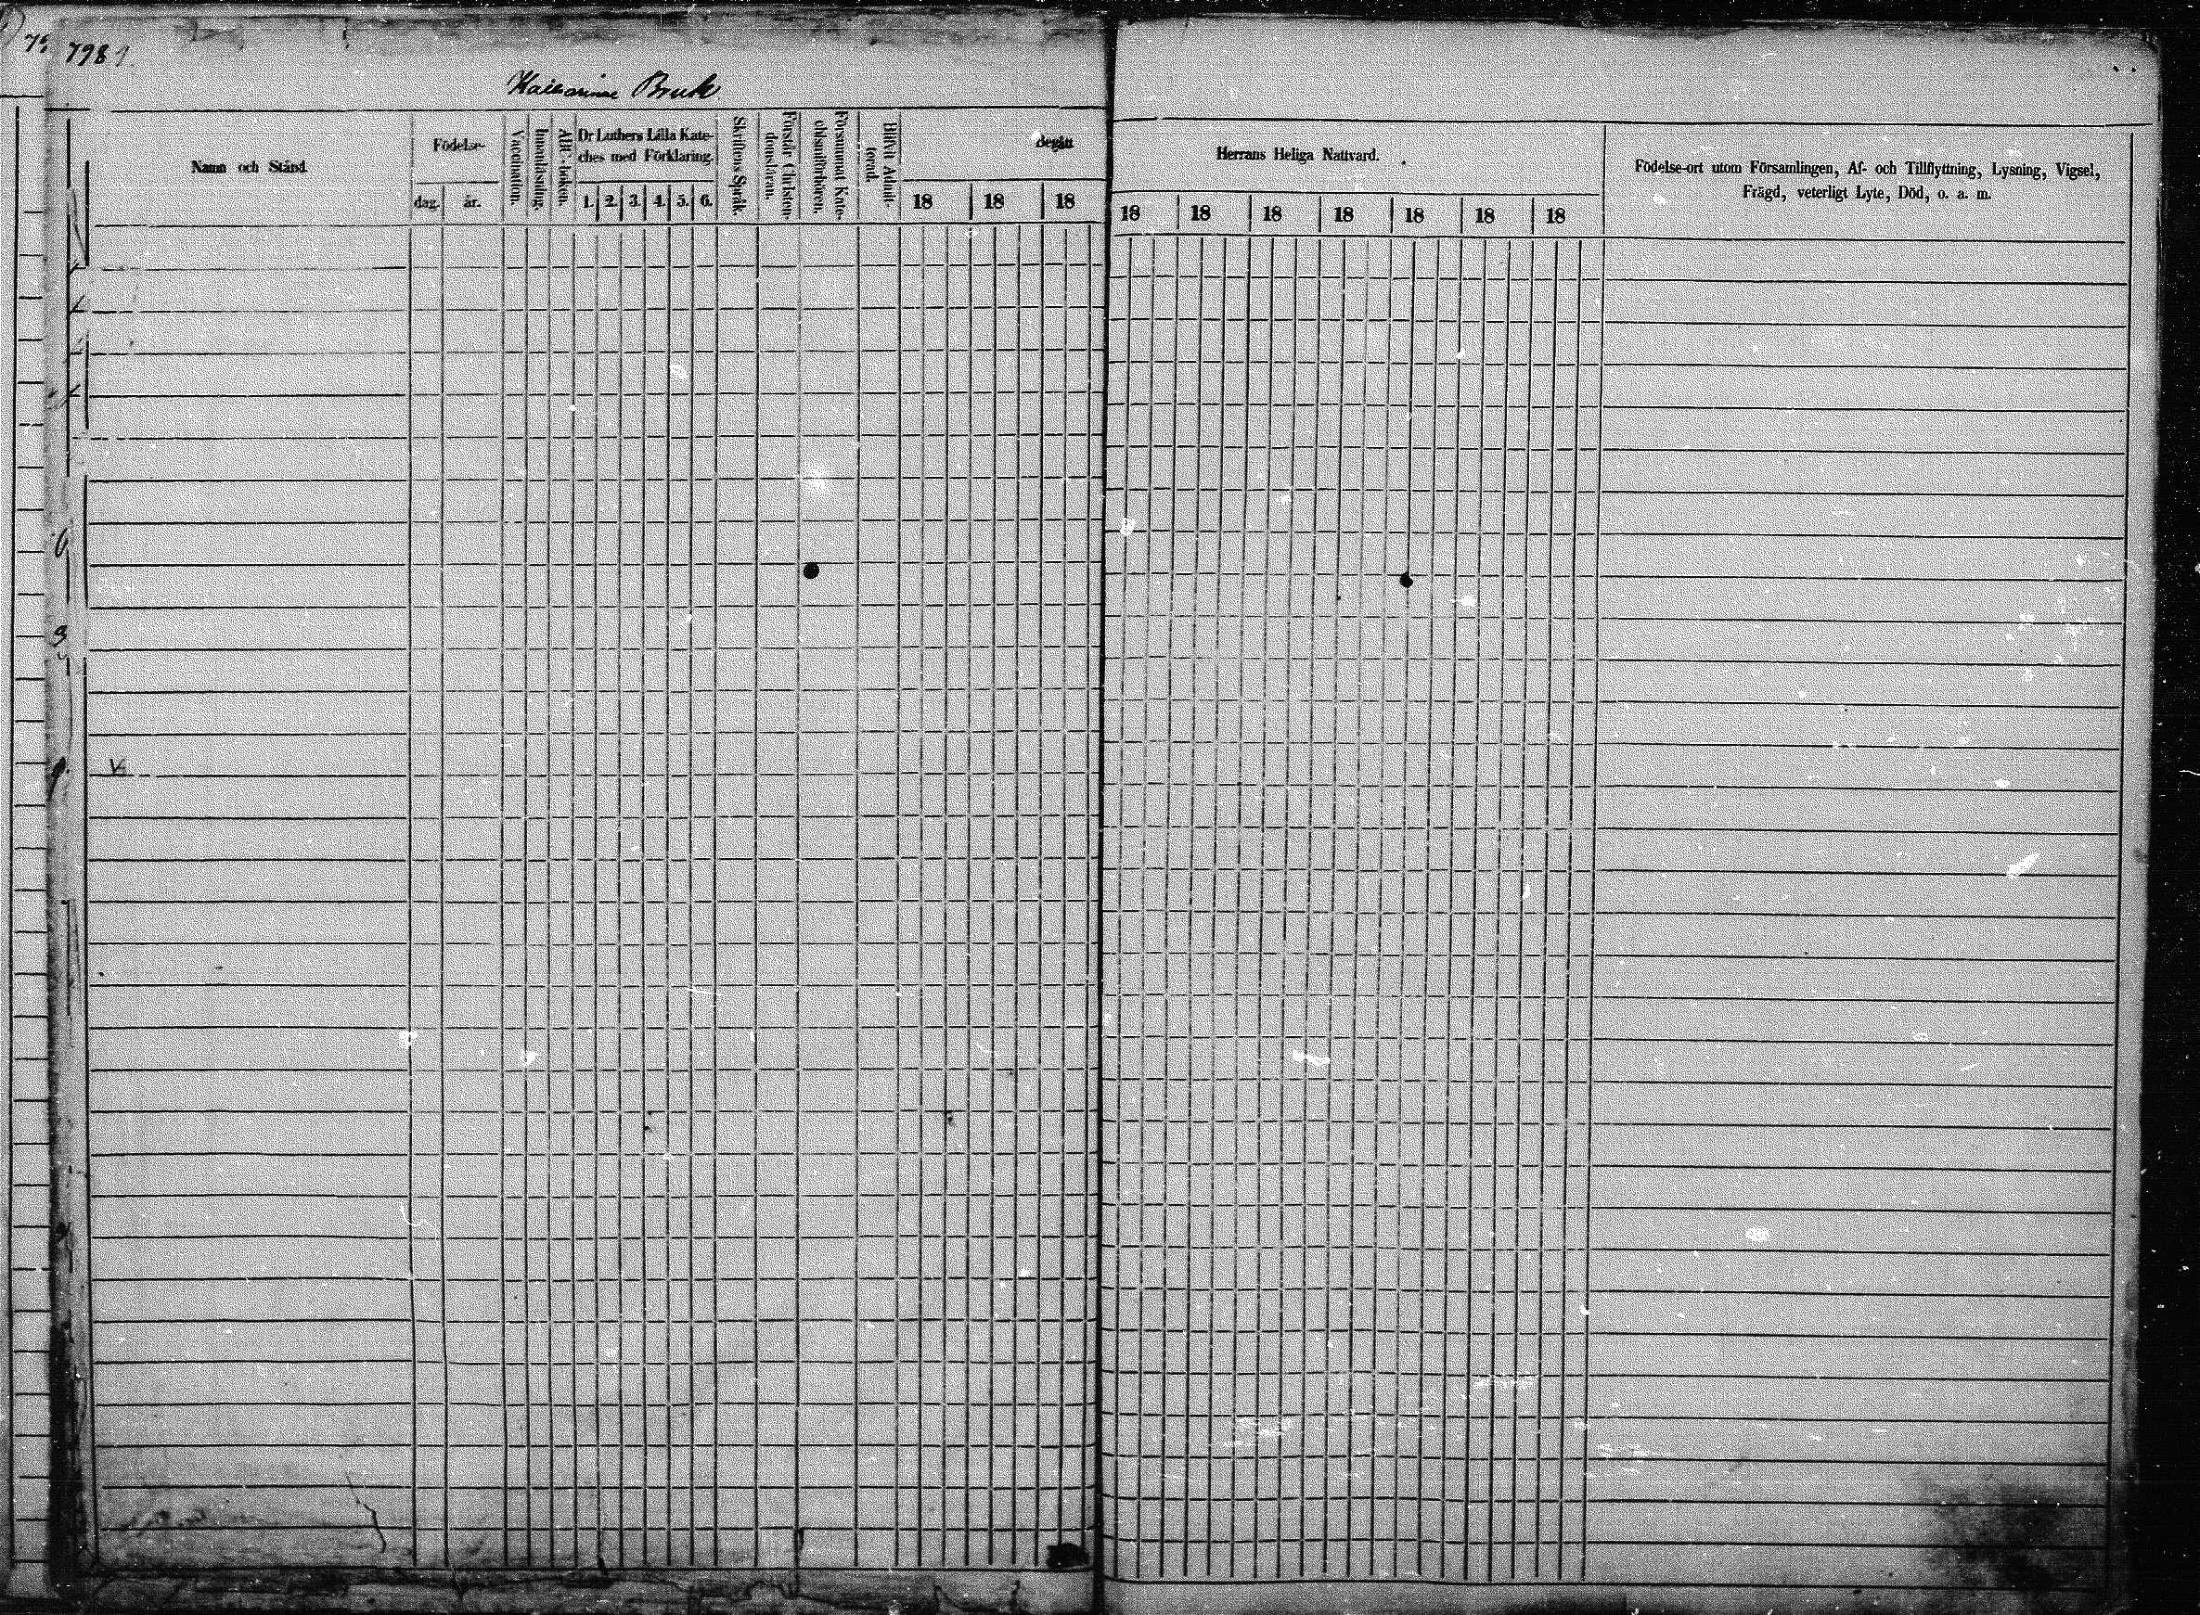 798
Bruk
Namn och Stånd.
Födelse-
dag. år.
Vaccination.
Innanläsning.
ABC-boken.
Dr Luthers Lilla Kate-
ches med Förklaring.
1. 2. 3. 4. 5. 6.
Skriftens Språk.
Förstår Christen-
domsläran.
Försummat Kate-
chismiförhören.
Blifvit Admit-
terad.
Begått
18 18 18
Herrans Heliga Nattvard.
18 18 18 18 18 18 18
Födelse-ort utom Församlingen, Af- och Tillflyttning, Lysning, Vigsel,
Frägd, veterligt Lyte, Död, o. a. m.